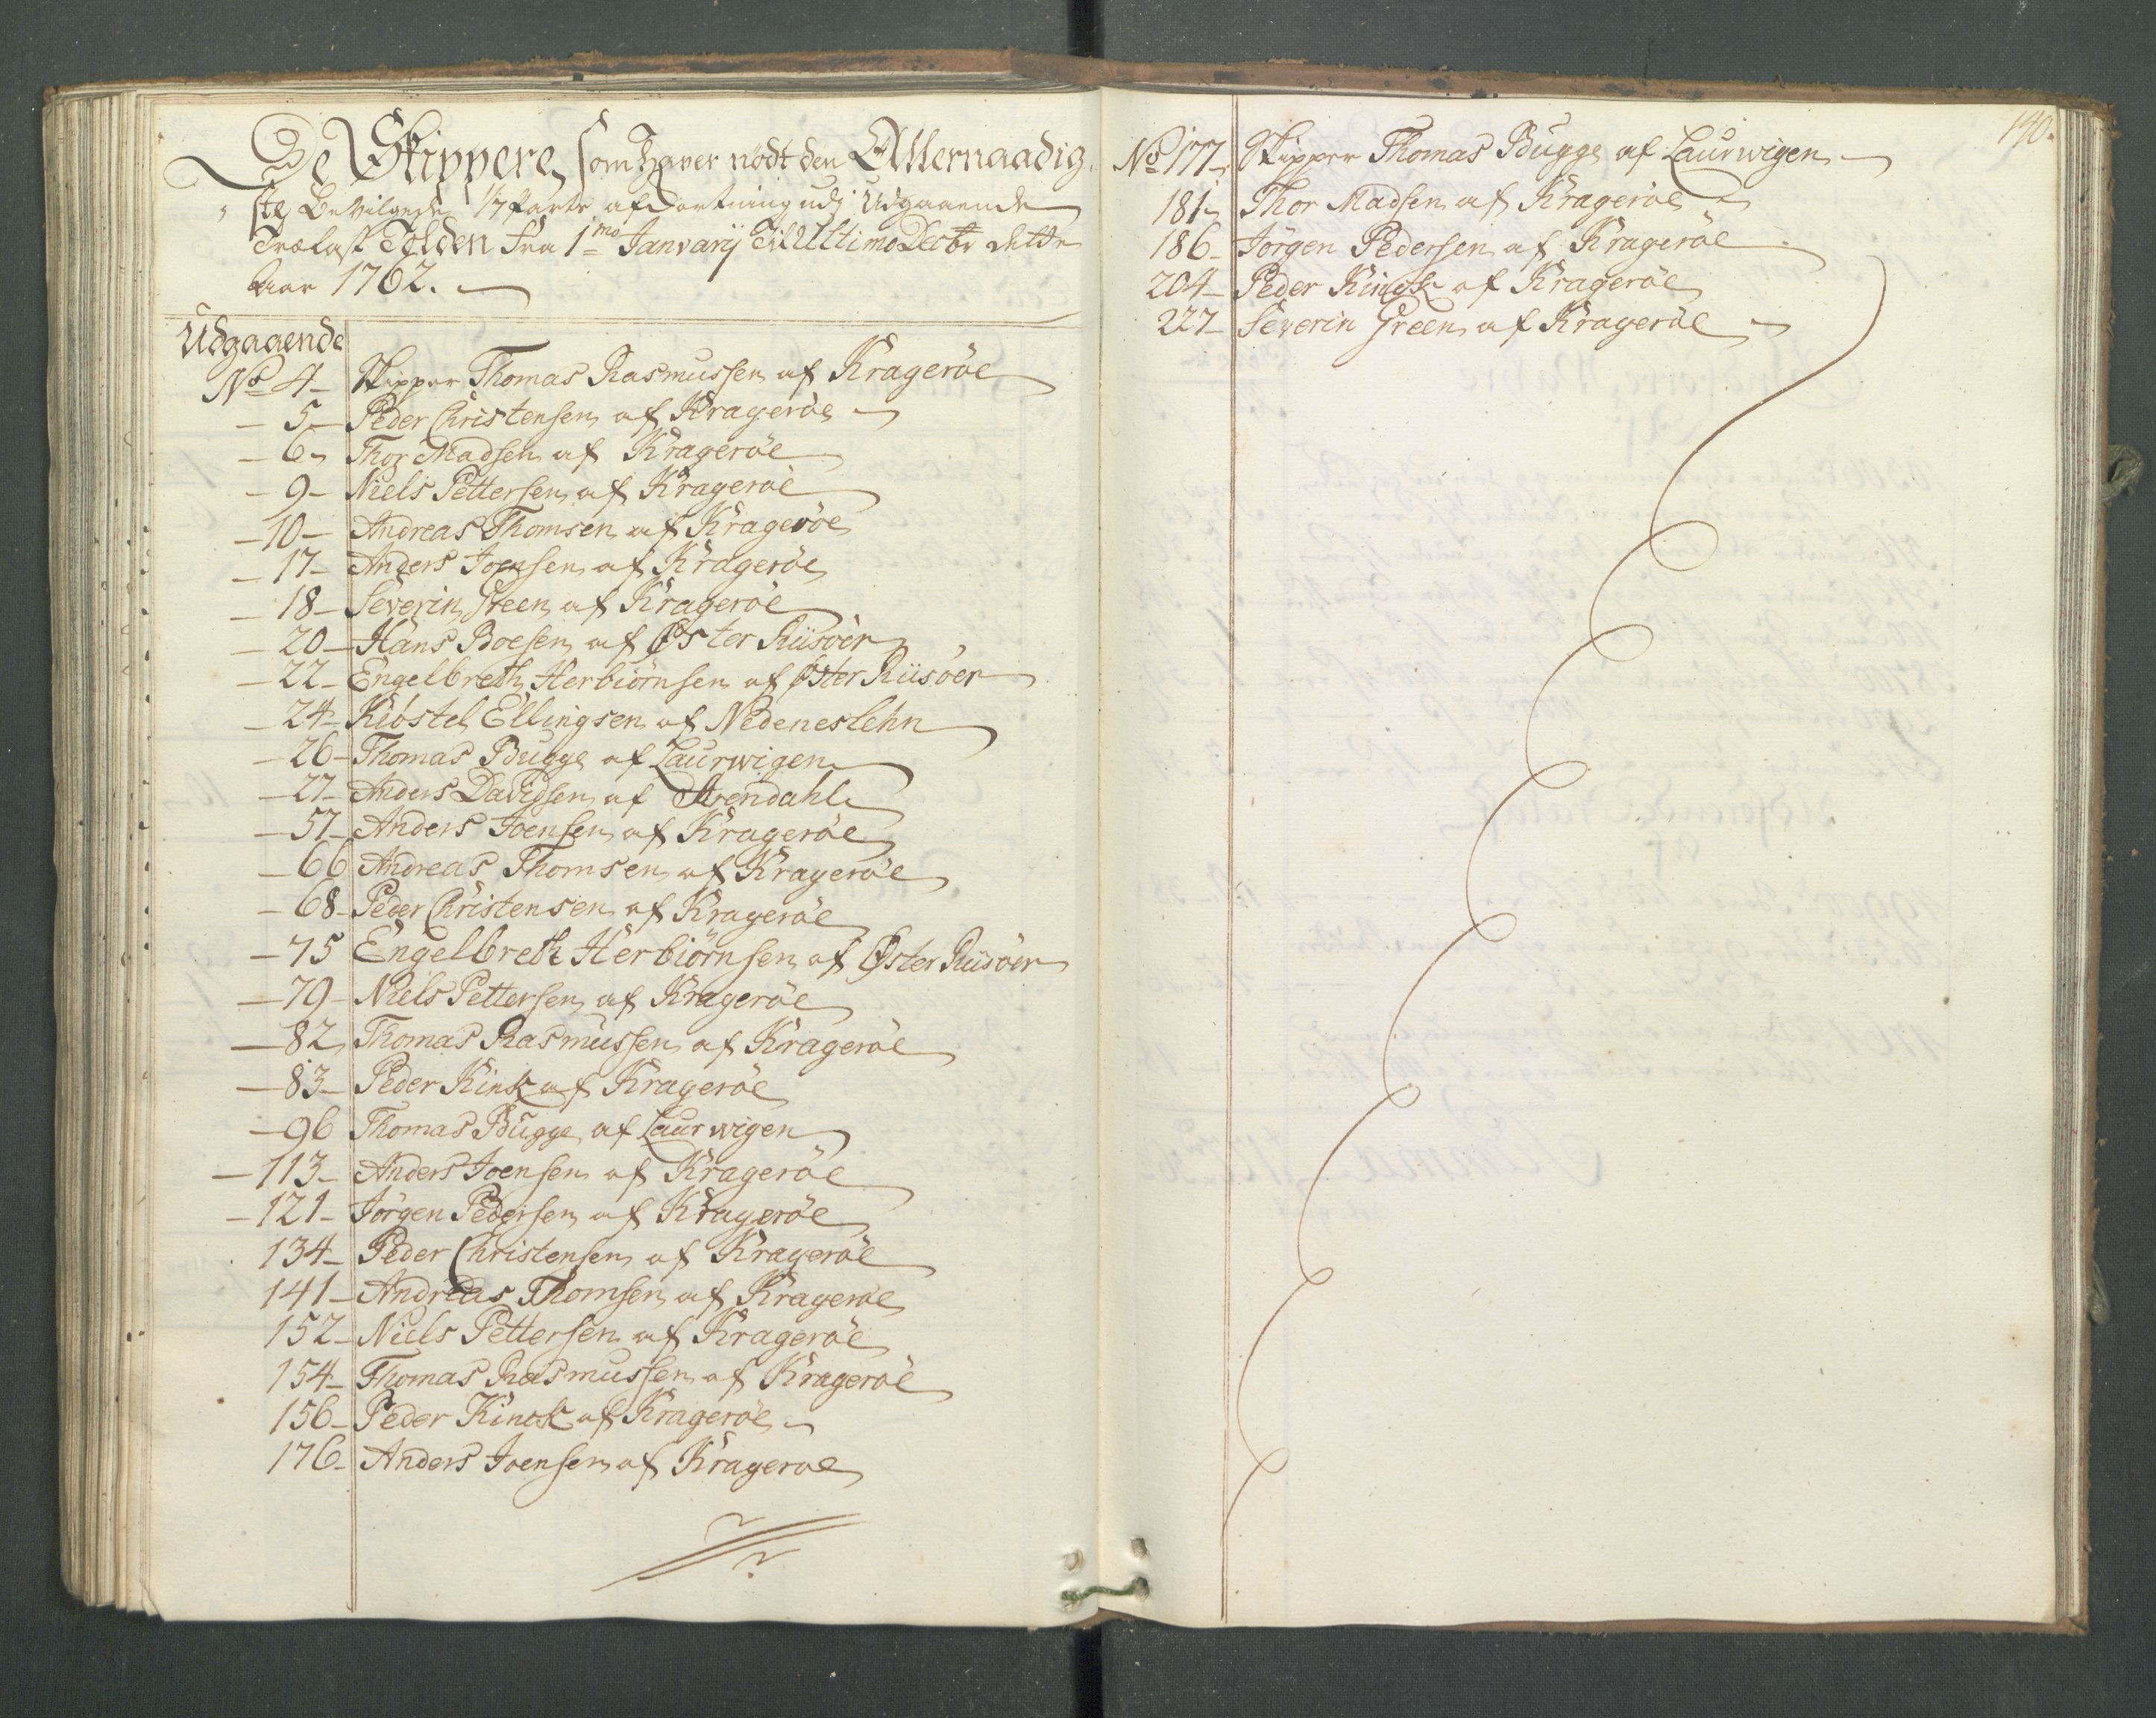 De Skippere, som haver nödt den Allernaadig-
ste Bevilgede 1/7 Parts afkortning udj Udgaaende
Trælast Tolden fra 1mo Januarij Til Ultimo Decbr dette
Aar 1762.
Udgaaende
No 4 Skipper Thomas Rasmussen af Krageröe
5 Peder Christensen af Krageröe
6 Thor Madsen af Krageröe
9 Niels Pettersen af Krageröe
10 Andreas Thomsen af Krageröe
17 Anders Joensen af Krageröe
18 Severin Green af Krageröe
20 Hans Boesen af Øster Riisöer
22 Engelbreth Herbiörnsen af Øster Riisöer
24 Kibstel Ellingsen af Nedeneslehn
26 Thomas Bugge af Laurwigen
27 Anders Davidsen af Arendahl
57 Anders Joensen af Krageröe
66 Andreas Thomsen af Krageröe
68 Peder Christensen af Krageröe
75 Engelbreth Herbiörnsen af Øster Riisöer
79 Niels Pettersen af Krageröe
82 Thomas Rasmussen af Krageröe
83 Peder Kinck af Krageröe
96 Thomas Bugge af Laurwigen
113 Anders Joensen af Krageröe
121 Jörgen Pedersen af Krageröe
134 Peder Christensen af Krageröe
141 Andreas Thomsen af Krageröe
152 Niels Pettersen af Krageröe
154 Thomas Rasmussen af Krageröe
156 Peder Kinck af Krageröe
176 Anders Joensen af Krageröe
140.
No 177 Skipper Thomas Bugge af Laurwigen
181 Thor Madsen af Krageröe
186 Jörgen Pedersen af Krageröe
204 Peder Kinck af Krageröe
227 Severin Green af Krageröe